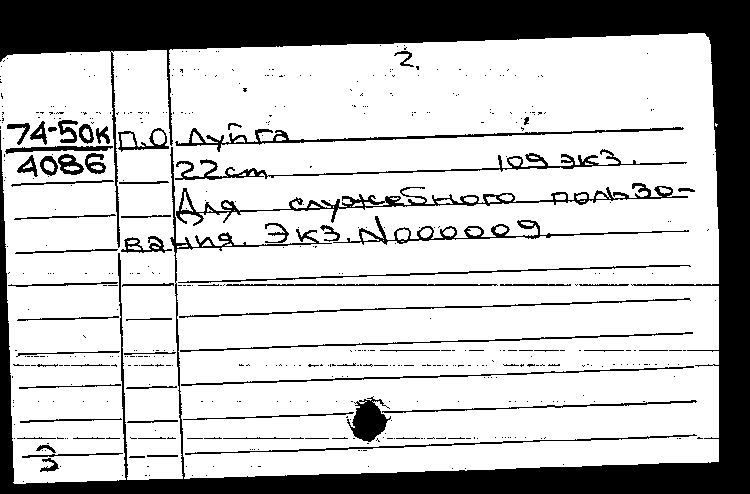 2.
74-50к п.о. Луйга
4086 22 cm. 109 экз.
Для служебного пользо-
вания. Экз. N000009.
3